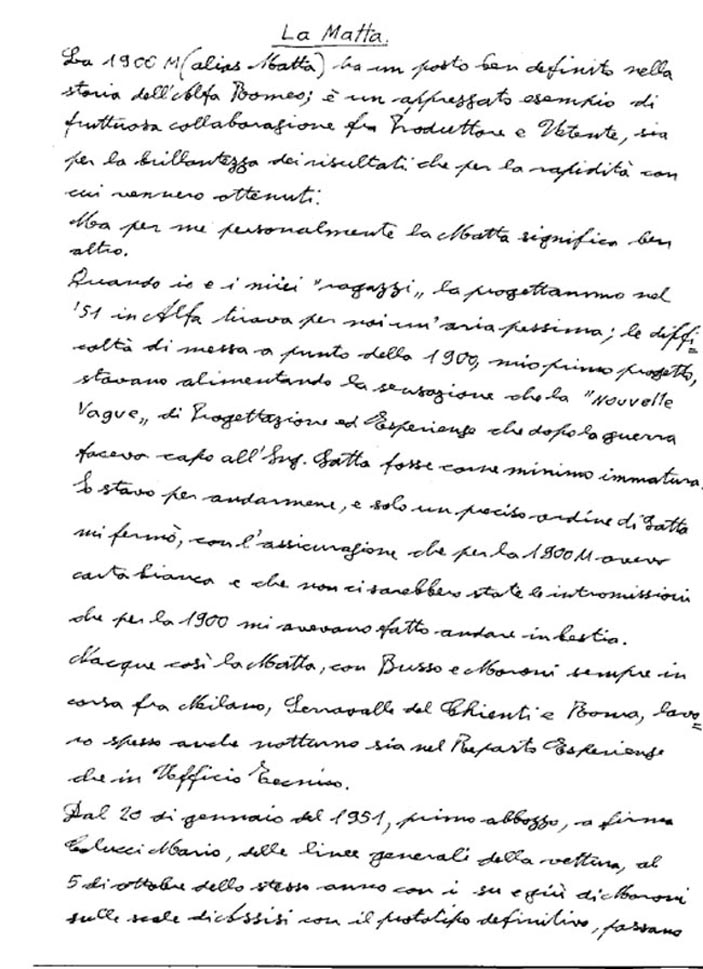 La Matta.
La 1900 M (alias Matta) ha un posto ben definito nella
storia dell'Alfa Romeo; è un apprezzato esempio di
fruttuosa collaborazione fra Produttore e Utente, sia
per la brillantezza dei risultati che per la rapidità con
cui vennero ottenuti.
Ma per me personalmente la Matta significa ben
altro.
Quando io e i miei "ragazzi" la progettammo nel
'51 in Alfa tirava per noi un'aria pessima; le diffi=
coltà di messa a punto della 1900, mio primo progetto,
stavano alimentando la sensazione che la "Nouvelle
Vague" di Progettazione ed Esperienze che dopo la guerra
faceva capo all'Ing. Satta fosse come minimo immatura.
Io stavo per andarmene, e solo un preciso ordine di Satta
mi fermò, con l'assicurazione che per la 1900 M avevo
carta bianca e che non ci sarebbero state le intromissioni
che per la 1900 mi avevano fatto andare in bestia.
Nacque così la Matta, con Busso e Moroni sempre in
corsa fra Milano, Serravalle del Chienti e Roma, lavo=
ro spesso anche notturno sia nel Reparto Esperienze
che in Ufficio Tecnico.
Dal 20 di gennaio del 1951, primo abbozzo, a firma
Colucci Mario, delle linee generali della vettura, al
5 di ottobre dello stesso anno con i su e giù di Moroni
sulle scale di Assisi con il prototipo definitivo, passano